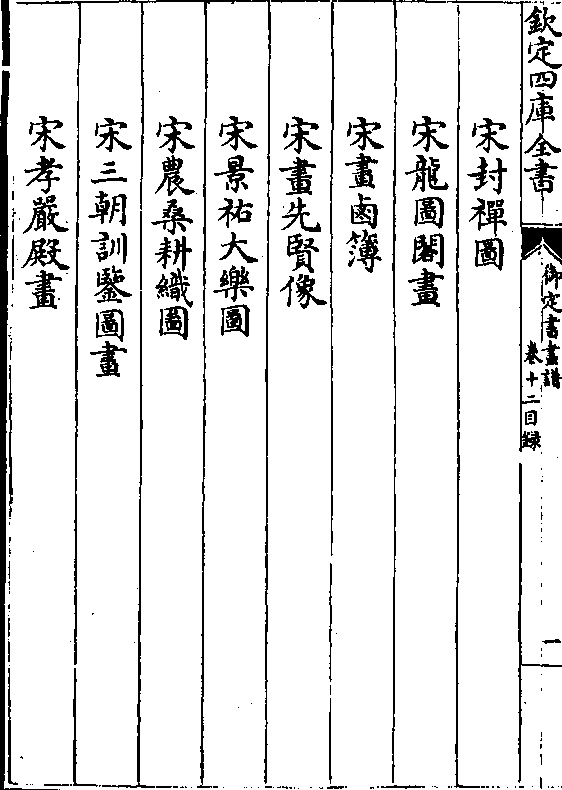 欽定四庫全書
御定書畫譜
卷十二目録
一
宋封禪圖
宋龍圖閣畫
宋畫鹵簿
宋畫先賢像
宋景祐大樂圖
宋農桑耕織圖
宋三朝訓鑒圖畫
宋孝嚴殿畫